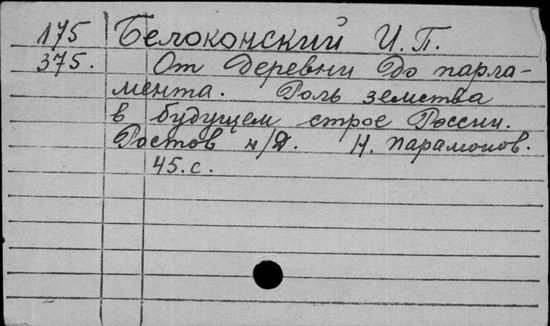 175 Белоконский И.П.
375. От деревни до парла-
мента. Роль земства
в будущем строе России.
Ростов н/Д. Н. Парамонов.
45.с.